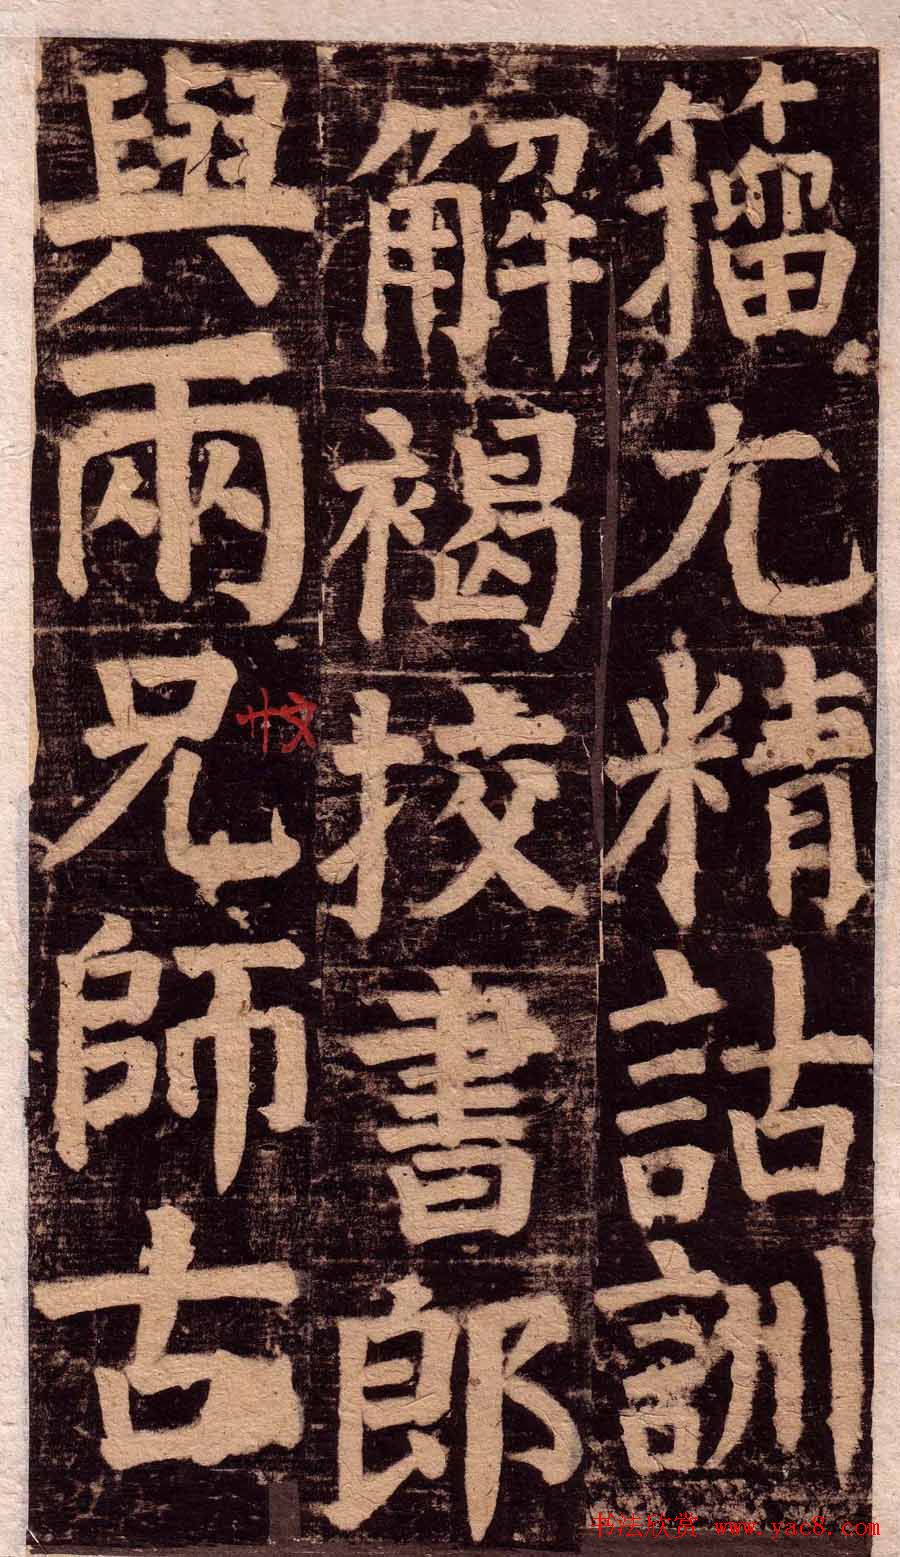 籀尤精詁訓
解褐挍書郎
與兩兄師古
书法欣赏 www.yac8.com